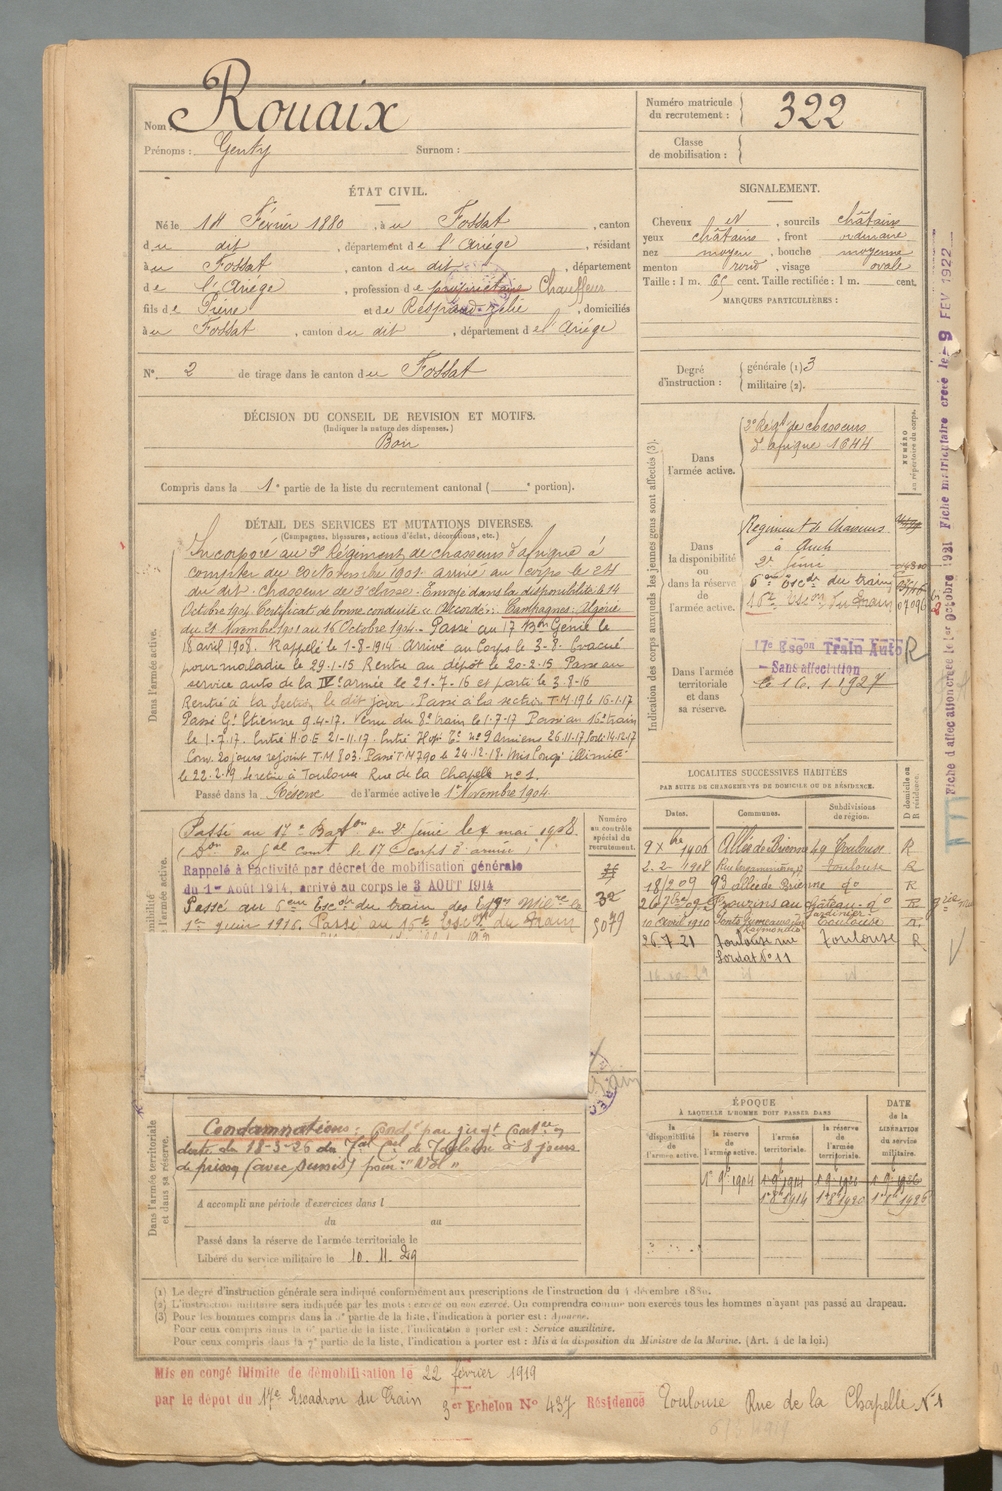 Nom : Rouaix
Prénoms : Genty Surnom :
Numéro matricule du recrutement : 322
Classe de mobilisation :
ÉTAT CIVIL.
Né le 14 Février 1880, à u Fossat, canton
d u dit, département d e l'Ariège, résidant
à u Fossat, canton d u dit, département
d e l'Ariège, profession d e propriétaire Chauffeur
fils d e Pierre et d e Respaud Zélie, domiciliés
à u Fossat, canton d u dit, département d e l'Ariège
N° 2 de tirage dans le canton d u Fossat
SIGNALEMENT.
Cheveux , sourcils châtains
yeux châtains, front ordinaire
nez moyen, bouche moyenne
menton rond, visage ovale
Taille : 1 m. 65 cent. Taille rectifiée : 1 m. cent.
MARQUES PARTICULIÈRES :
Degré d'instruction : générale (1) 3
militaire (2).
DÉCISION DU CONSEIL DE REVISION ET MOTIFS.
(Indiquer la nature des dispenses.)
Bon
Compris dans la 1e partie de la liste du recrutement cantonal ( e portion).
DÉTAIL DES SERVICES ET MUTATIONS DIVERSES.
(Campagnes, blessures, actions d'éclat, décorations, etc.)
Dans l'armée active.
Incorporé au 3e Régiment de chasseurs d'afrique à
compter du 20 Novembre 1901 arrivé au corps le 24
du dit. chasseur de 2e classe. Envoyé dans la disponibilité le 14
Octobre 1904. Certificat de bonne conduite "Accordé". Campagnes: Algérie
du 21 Novembre 1901 au 16 Octobre 1904. Passé au 17 Bon Génie le
18 avril 1908. Rappelé le 1-8-1914 Arrivé au Corps le 3-8. Évacué
pour maladie le 29-1-15 Rentré au dépôt le 20-2-15 Passé au
service autos de la IVe armée le 21-7-16 et parti le 3-8-16
Rentré à la Section le dit jour. Passé à la section T.M 196 16-1-17
Passé Gt Etienne 9.4-17. Venu du 8e train le 1-7-17 Passé au 16e train
le 1-7-17. Entré H.O.E 21-11-17. Entré Hop. n°9 Amiens 26.11-17 Sorti 14-12-17
Conv. 20 jours rejoint T.M 803. Passé T.M 790 le 24.12-18. Mis congé illimité
le 22.2.19 se retire à Toulouse Rue de la Chapelle n° 1.
Passé dans la Réserve de l'armée active le 1er Novembre 1904.
Indication des corps auxquels les jeunes gens sont affectés (3).
NUMÉRO au répertoire du corps.
Dans l'armée active.
3e Régt de chasseurs
d'afrique 1644
Dans la disponibilité ou dans la réserve de l'armée active.
Régiment de Chasseurs
à Auch
2e Génie
6eme Escdr du train
16e Escon du Train
07096
Dans l'armée territoriale et dans sa réserve.
17e Escon Train Auto R
Sans affectation
le 16.1.1927
LOCALITÉS SUCCESSIVES HABITÉES
PAR SUITE DE CHANGEMENTS DE DOMICILE OU DE RÉSIDENCE.
Dates. Communes. Subdivisions de région. D domicile ou R résidence.
9 Xbre 1906 Allée de Brienne 49 Toulouse R
2-2-1908 Toulouse R
18/2 09 93 allée de Brienne do R
Frouzins au château do R
jardinier
10 Avril 1910 Ponts Jumeaux Toulouse R
26.7.21 Toulouse rue Toulouse R
Sordat N° 11
16-10-29 id id
Passé au 17e Baton du 2e Génie le 7 mai 1908.
Rappelé à l'activité par décret de mobilisation générale
du 1er Août 1914, arrivé au corps le 3 AOUT 1914
Passé au 6eme Escdr du train des Eqges Milres le
1er juin 1916. Passé au 16e Escon du Train
Numéro au contrôle spécial du recrutement.
32
5079
Dans l'armée territoriale et dans sa réserve.
Condamnations: Condé par jugt
date du 18-3-26 du Tal Cel de Toulouse à 8 jours
de prison (avec sursis) pour: "Vol"
A accompli une période d'exercices dans l
du au
Passé dans la réserve de l'armée territoriale le
Libéré du service militaire le 10.11.29
ÉPOQUE
À LAQUELLE L'HOMME DOIT PASSER DANS
DATE de la LIBÉRATION du service militaire.
la disponibilité de l'armée active. la réserve de l'armée active. l'armée territoriale. la réserve de l'armée territoriale.
1er 9bre 1904 1er 9bre 1914 1er 9bre 1920 1er 9bre 1926
1er 8bre 1914 1er 8bre 1920 1er 8bre 1926
(1) Le degré d'instruction générale sera indiqué conformément aux prescriptions de l'instruction du 4 décembre 1889.
(2) L'instruction militaire sera indiquée par les mots : exercé ou non exercé. On comprendra comme non exercés tous les hommes n'ayant pas passé au drapeau.
(3) Pour les hommes compris dans la 5e partie de la liste, l'indication à porter est : Ajourné.
Pour ceux compris dans la 6e partie de la liste, l'indication à porter est : Service auxiliaire.
Pour ceux compris dans la 7e partie de la liste, l'indication à porter est : Mis à la disposition du Ministre de la Marine. (Art. 4 de la loi.)
Mis en congé illimité de démobilisation le 22 février 1919
par le dépôt du 17e Escadron du Train 3er Echelon N° 437 Résidence Toulouse Rue de la Chapelle N°1
Fiche d'affectation créée le 1er Octobre 1921 Fiche matriculaire créée le 9 FEV 1922